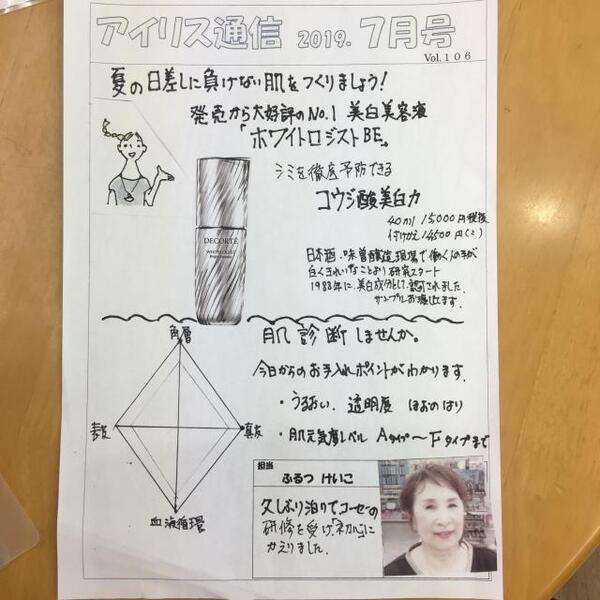 アイリス通信 2019. 7月号
Vol.106
夏の日差しに負けない肌をつくりましょう!
発売から大好評のNo.1 美白美容液
「ホワイトロジストBE」
シミを徹底予防できる
コウジ酸美白力
40ml 15,000円税後
付けかえ 14500円(〃)
DECORTÉ
日本酒・味噌醸造現場で働く人の手が
白くきれいなことより研究スタート
1988年に、美白成分として認可されました
サンプルお渡しします.
肌診断しませんか。
今日からのお手入れポイントがわかります.
・うるおい. 透明度 ほおのはり
・肌元気度レベル Aタイプ〜Fタイプまで
角層
表皮
真皮
血液循環
担当
ふるつ けいこ
久しぶり泊りでコーセーの
研修を受け「初心」に
かえりました.